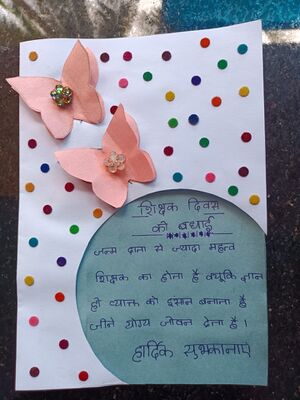 शिक्षक दिवस
की बधाई
जन्म दाता से ज्यादा महत्व
शिक्षक का होता है क्यूकि ज्ञान
ही व्यक्त को इंसान बनाता है
जीने योग्य जीवन देता है ।
हार्दिक सुभकानाएं